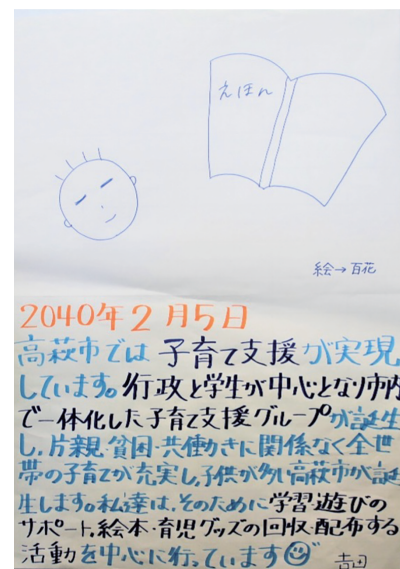 えほん
絵→百花
2040年2月5日
高萩市では子育て支援が実現
しています。行政と学生が中心となり市内
で一体化した子育て支援グループが誕生
し、片親・貧困・共働きに関係なく全世
帯の子育てが充実し、子供が多い高萩市が誕
生します。私達は、そのために学習・遊びの
サポート、絵本・育児グッズの回収・配布する
活動を中心に行っています
吉田